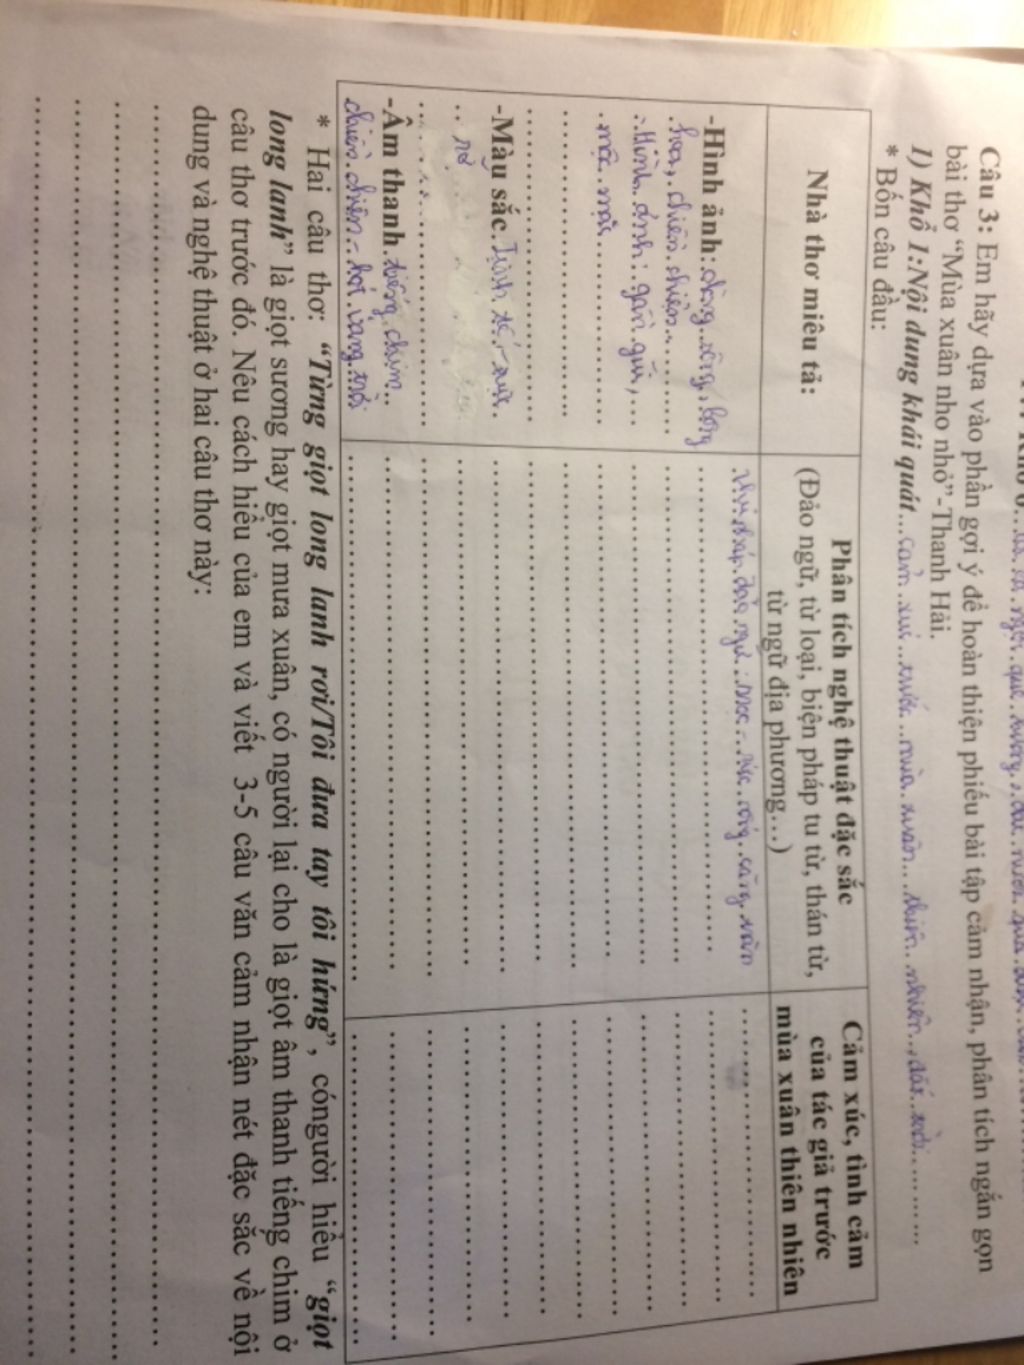 Câu 3: Em hãy dựa vào phần gợi ý để hoàn thiện phiếu bài tập cảm nhận, phân tích ngắn gọn
bài thơ “Mùa xuân nho nhỏ”-Thanh Hải.
1) Khổ 1:Nội dung khái quát...cảm xúc trước mùa xuân thiên nhiên, đất trời
* Bốn câu đầu:
Nhà thơ miêu tả:
Phân tích nghệ thuật đặc sắc
(Đảo ngữ, từ loại, biện pháp tu từ, thán từ,
từ ngữ địa phương...)
Cảm xúc, tình cảm
của tác giả trước
mùa xuân thiên nhiên
-Hình ảnh: dòng sông, bông
hoa, chiền chiện
Hình ảnh: gần gũi,
mộc mạc
-Màu sắc
-Âm thanh tiếng chim
chiền chiện - hót vang trời
đảo ngữ: mọc
* Hai câu thơ: “Từng giọt long lanh rơi/Tôi đưa tay tôi hứng”, cóngười hiểu “giọt
long lanh” là giọt sương hay giọt mưa xuân, có người lại cho là giọt âm thanh tiếng chim ở
câu thơ trước đó. Nêu cách hiểu của em và viết 3-5 câu văn cảm nhận nét đặc sắc về nội
dung và nghệ thuật ở hai câu thơ này: